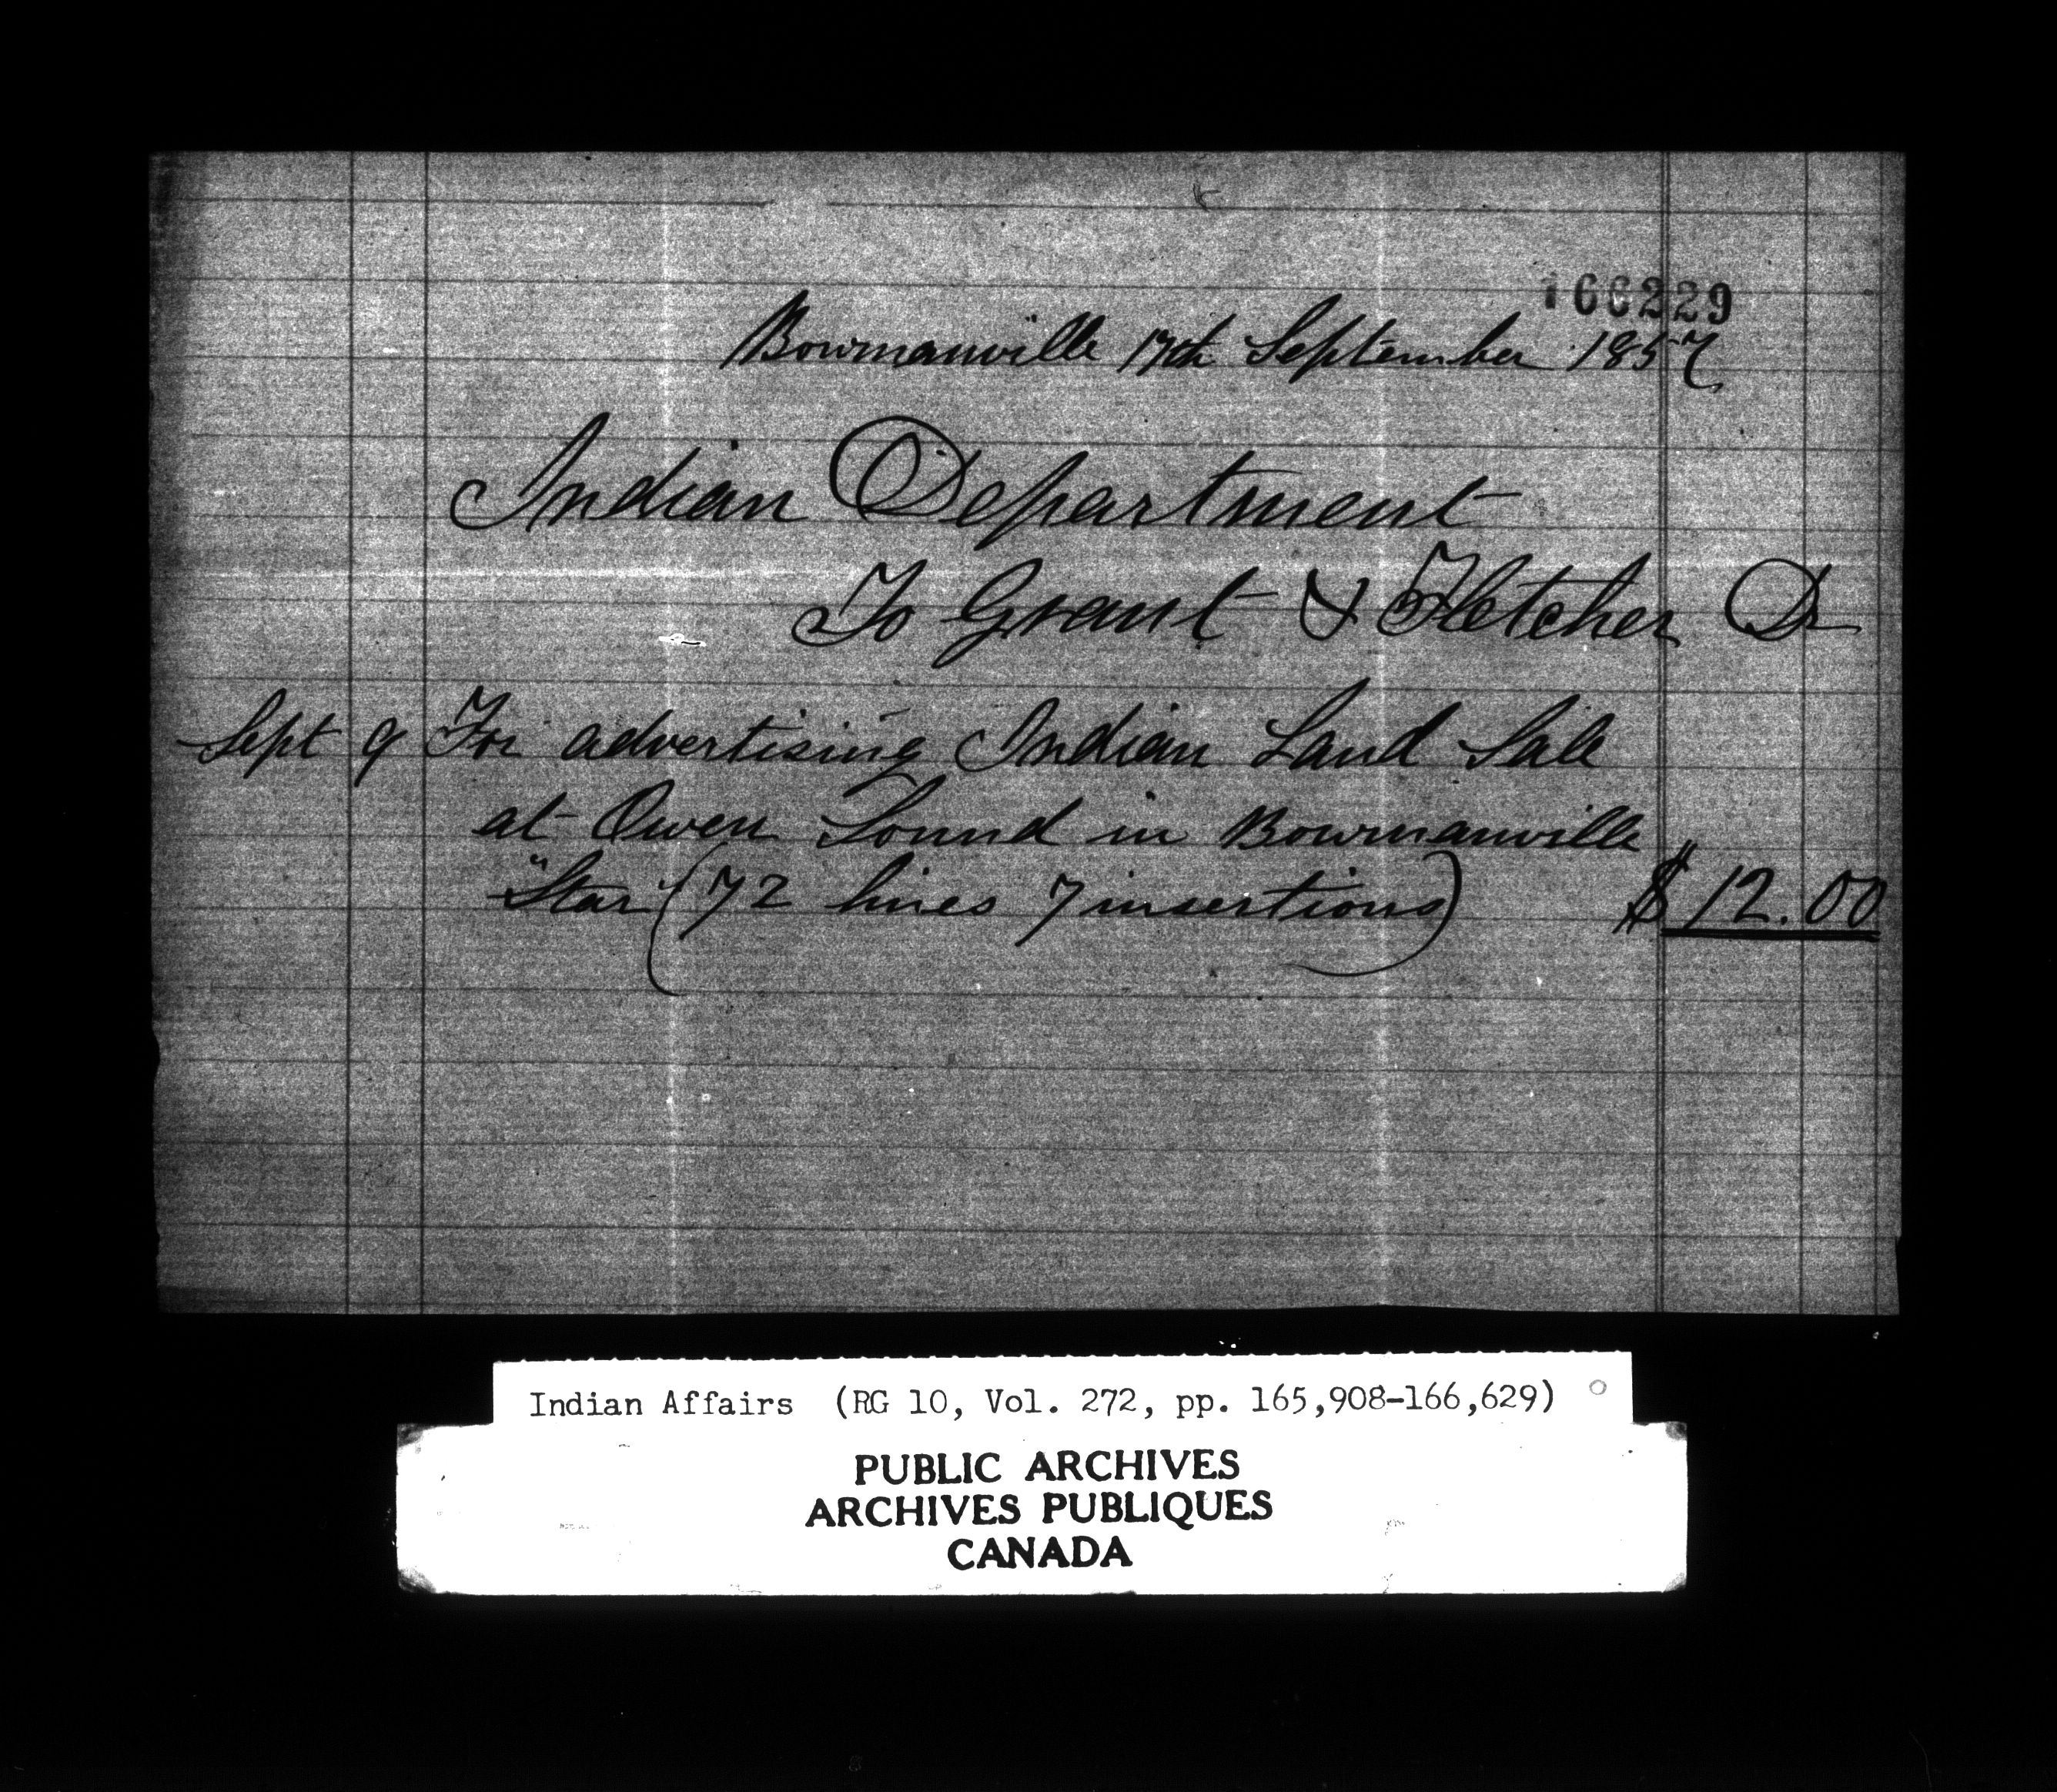 166229
Bowmanville 17th September 1857
Indian Department
To Grant & Fletcher Dr
Sept 9 For advertising Indian Land Sale
at Owen Sound in Bowmanville
"Star" (72 lines 7 insertions) $12.00
Indian Affairs (RG 10, Vol. 272, pp. 165,908-166,629)
PUBLIC ARCHIVES
ARCHIVES PUBLIQUES
CANADA